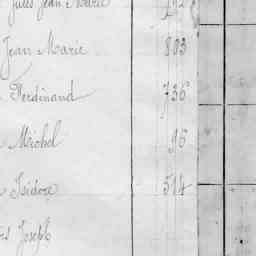 Jules Jean Marie 142
Jean Marie 803
Ferdinand 736
Michel 96
Isidore 514
Joseph